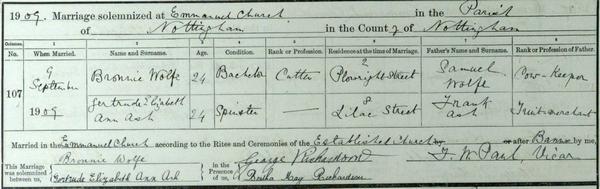 1909. Marriage solemnized at Emmanuel Church in the Parish
of Nottingham in the County of Nottingham
Columns. 1 2 3 4 5 6 7 8
No. When Married. Name and Surname. Age. Condition. Rank or Profession. Residence at the time of Marriage. Father's Name and Surname. Rank or Profession of Father.
107 9 September 1909 Bronnie Wolfe 24 Bachelor Cutter 2 Plowright Street Samuel Wolfe Cow-Keeper
Gertrude Elizabeth Ann Ash 24 Spinster — 8 Lilac Street Frank Ash Fruit merchant
Married in the Emmanuel Church according to the Rites and Ceremonies of the Established Church by or after Banns by me,
This Marriage was solemnized between us, Bronnie Wolfe Gertrude Elizabeth Ann Ash in the Presence of us, George Richardson Bertha May Richardson Vicar